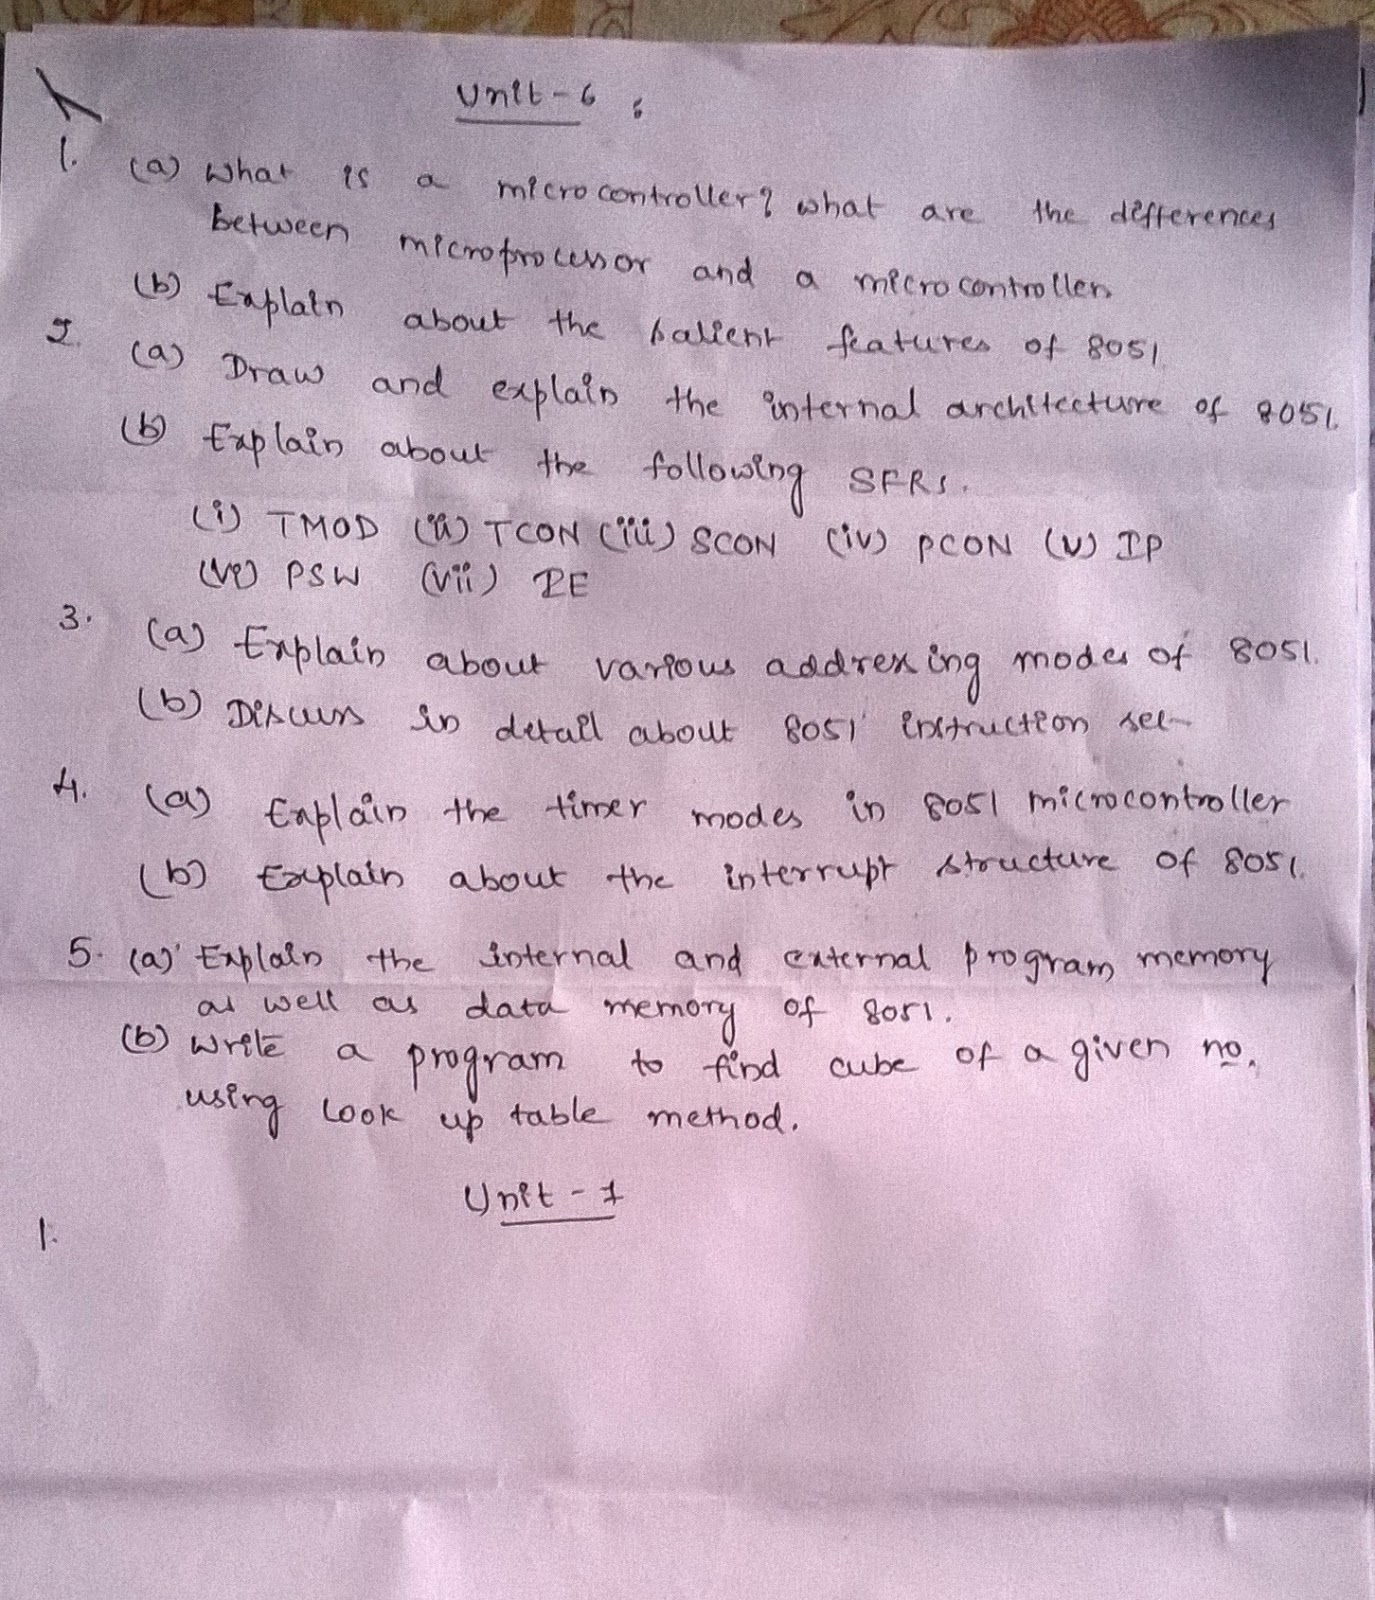 Unit - 6 :
1. (a) What is a microcontroller? what are the differences
between microprocessor and a microcontroller.
(b) Explain about the salient features of 8051.
2. (a) Draw and explain the internal architecture of 8051.
(b) Explain about the following SFRs.
(i) TMOD (ii) TCON (iii) SCON (iv) PCON (v) IP
(vi) PSW (vii) IE
3. (a) Explain about various addressing modes of 8051.
(b) Discuss in detail about 8051 instruction set
4. (a) Explain the timer modes in 8051 microcontroller
(b) Explain about the interrupt structure of 8051.
5. (a) Explain the internal and external program memory
as well as data memory of 8051.
(b) Write a program to find cube of a given no.
using look up table method.
Unit - 7
1.